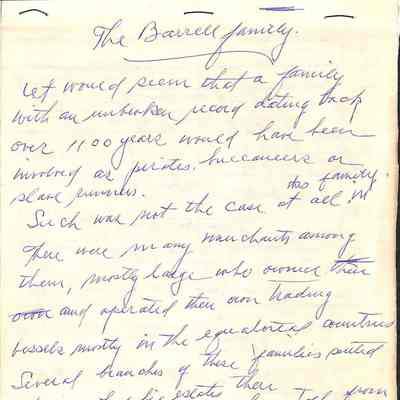 The Barrell family.
It would seem that a family
with an unbroken record dating back
over 1100 years would have been
involved as pirates, buccaneers or
slave runners.
this family.
Such was not the case at all in
There were many merchants among
them, mostly large who owned their
own and operated their own trading
vessels mostly in the equatorial countries
Several branches of these families settled
estates there
from